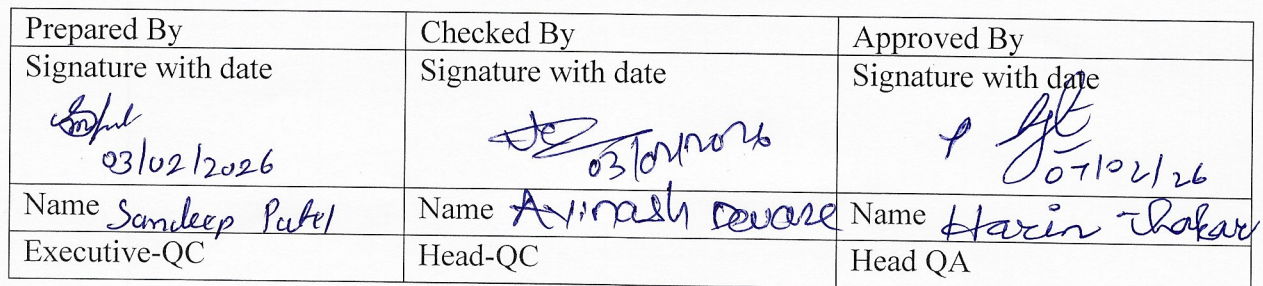 Prepared By
Checked By
Approved By
Signature with date
Signature with date
Signature with date
03/02/2026
03/02/2026
07/02/26
Name Sandeep Patel
Name Avinash Deware
Name Harin Thakar
Executive-QC
Head-QC
Head QA